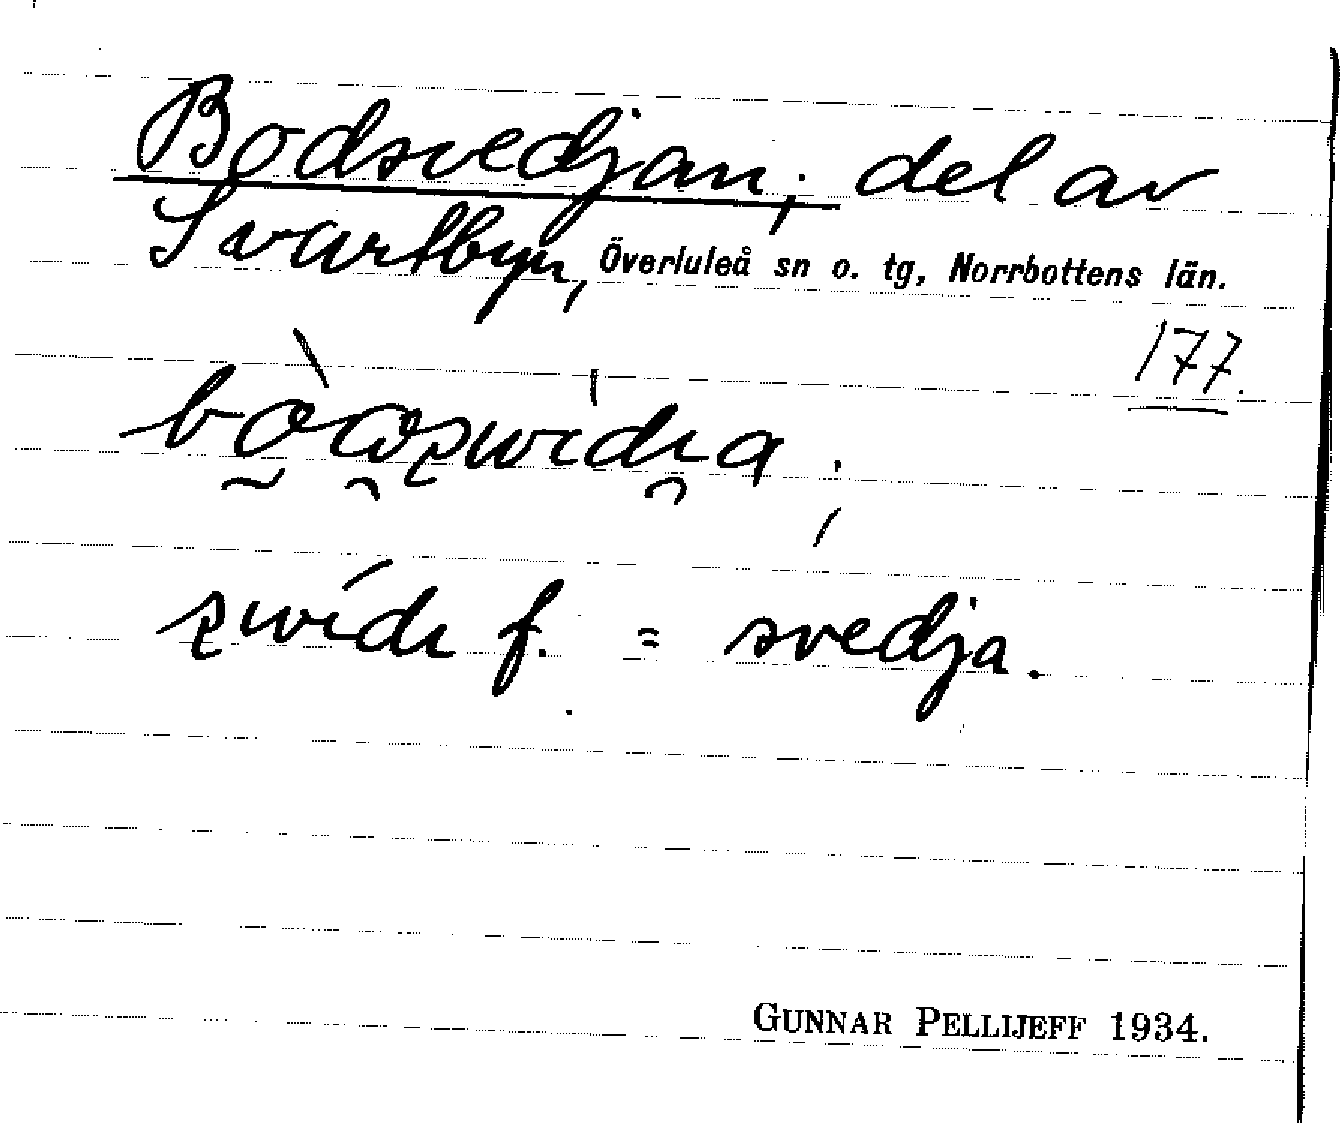 Bodsvedjan; del av
Svartbyn, Överluleå sn o. tg, Norrbottens län.
177.
f. = svedja.
GUNNAR PELLIJEFF 1934.